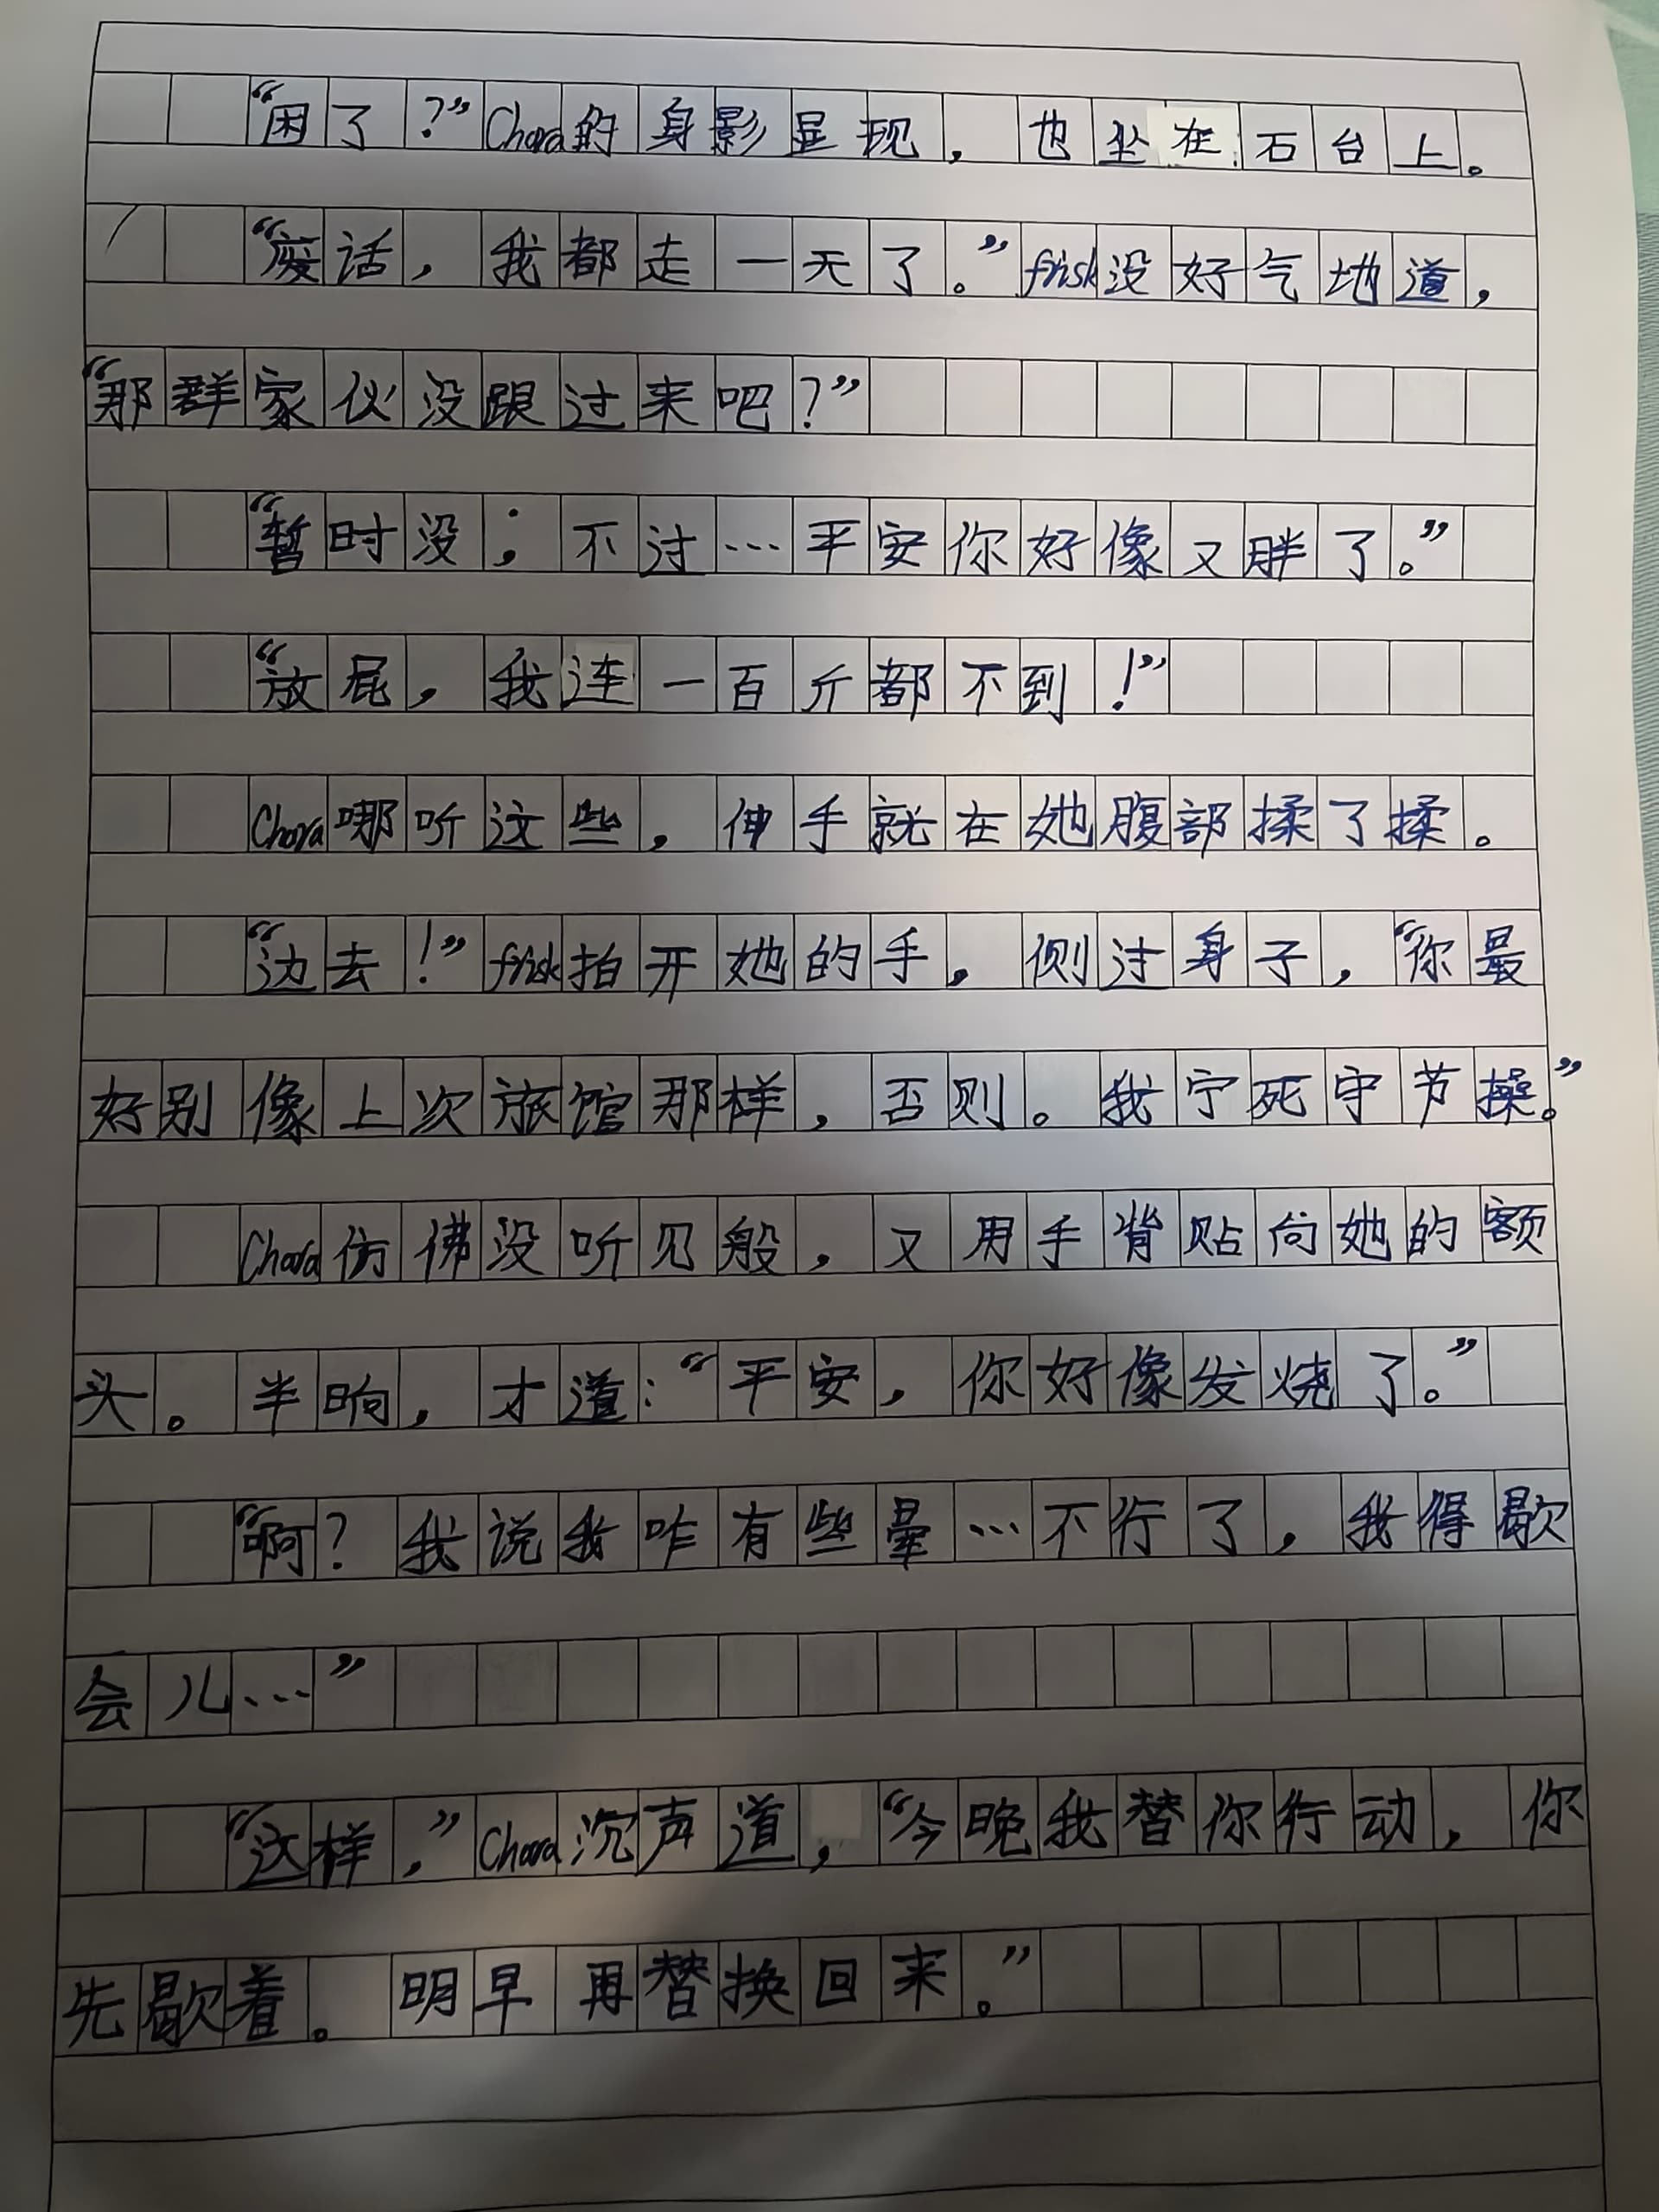 “困了？”Chara的身影显现，也坐在石台上。
“废话，我都走一天了。”frisk没好气地道，
“那群家伙没跟过来吧？”
“暂时没；不过…平安你好像又胖了。”
“放屁，我连一百斤都不到！”
Chara哪听这些，伸手就在她腹部揉了揉。
“边去！”frisk拍开她的手，侧过身子，“你最
好别像上次旅馆那样，否则。我宁死守节操。”
Chara仿佛没听见般，又用手背贴向她的额
头。半晌，才道：“平安，你好像发烧了。”
“啊？我说我咋有些晕…不行了，我得歇
会儿…”
“这样，”Chara沉声道，“今晚我替你行动，你
先歇着。明早再替换回来。”